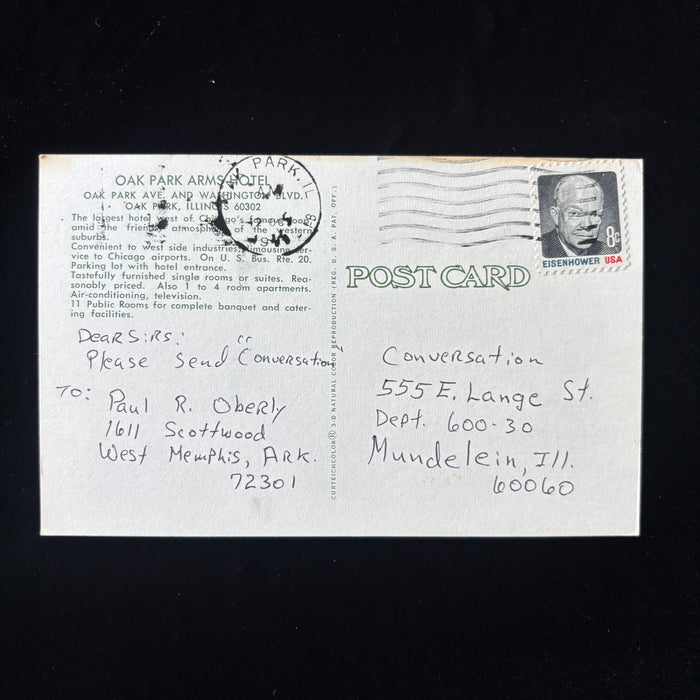 OAK PARK ARMS HOTEL
OAK PARK AVE. AND WASHINGTON BLVD.
OAK PARK, ILLINOIS 60302
The largest hotel west of Chicago's
amid the friendly atmosphere of the western
suburbs.
Convenient to west side industries, limousine ser-
vice to Chicago airports. On U. S. Bus. Rte. 20.
Parking lot with hotel entrance.
Tastefully furnished single rooms or suites. Rea-
sonably priced. Also 1 to 4 room apartments.
Air-conditioning, television.
11 Public Rooms for complete banquet and cater-
ing facilities.
Dear Sirs:
Please Send "Conversation"
To: Paul R. Oberly
1611 Scottwood
West Memphis, Ark.
72301
CURTEICHCOLOR® 3-D NATURAL COLOR REPRODUCTION (REG. U. S. A. PAT. OFF.)
PARK, IL
8c
EISENHOWER USA
POST CARD
Conversation
555 E. Lange St.
Dept. 600-30
Mundelein, Ill.
60060